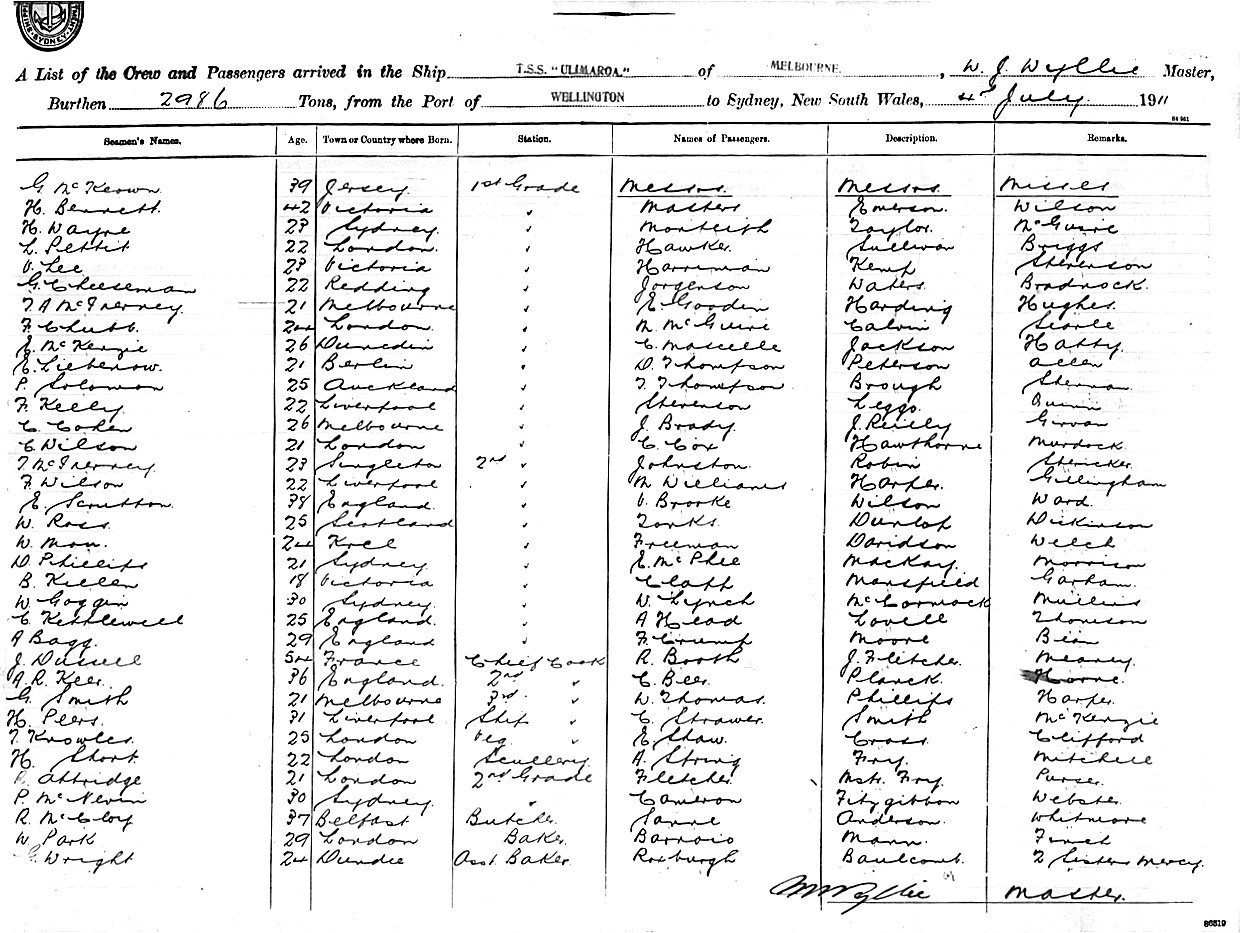 SHIPPING · SYDNEY
A List of the Crew and Passengers arrived in the Ship T.S.S. "ULIMAROA." of MELBOURNE. , W. J. Wyllie Master,
Burthen 2986 Tons, from the Port of WELLINGTON to Sydney, New South Wales, 4th July 1911
84 941
Seamen's Names. Age. Town or Country where Born. Station. Names of Passengers. Description. Remarks.
G. McKeown 39 Jersey 1st Grade Messrs. Messrs. Misses
H. Bennett. 42 Victoria " Masters Emerson. Wilson
H. Wayne 23 Sydney. " Monteith Taylor. McGuire
L. Pettit 22 London. " Hawker. Sullivan Briggs
V. Lee 23 Victoria " Harriman Kemp Stevenson
G. Cheeseman 22 Redding " Jorgenson Waters. Bradnock.
T. A McInerney. 21 Melbourne " E. Gooden Harding Hughes.
F. Chubb. 24 London. " M. McGuire Calvin Searle
E. McKenzie 26 Dunedin " C. Mascelle Jackson Hatty.
E. Liebenow. 21 Berlin " D. Thompson Peterson Allen
P. Solomon 25 Auckland " T. Thompson Brough Sherman.
F. Kelly. 22 Liverpool " Stevenson Leggo. Quinn
C. Cohen 26 Melbourne " J. Brady. J. Reilly Girvan
C. Wilson 21 London " C. Cox Hawthorne Murdock.
T. McInerney. 23 Singleton 2nd " Johnston. Robin Stericker.
F. Wilson 22 Liverpool " M Williams Harper. Gillingham
E. Scrutton. 38 England. " V. Brooke Wilson Ward.
W. Ross. 25 Scotland " Tonks. Dunlop Dickinson
W. Mon. 24 Kreel " Freeman Davidson Welch
D. Phillips 21 Sydney " E. McPhee MacKay. Morrison
B. Killen 18 Victoria " Clapp Mansfield Garham.
W. Goggin 30 Sydney. " W. Lynch McCormack Mullins
C. Kettlewell 25 England. " A Head Lovell Thomson
A Bagg. 29 England " F. Crump Moore Bein
J. Dussell 54 France Chief Cook R. Booth J. Fletcher. Meaney.
A. R. Keer. 36 England. 2nd " C. Beer Planck. Horne.
G. Smith 21 Melbourne 3rd " W. Thomas. Phillips Harper
H. Peers. 31 Liverpool Ship " C. Strawer. Smith McKenzie
T. Knowles. 25 London Veg " E Shaw. Cross Clifford
H. Short. 22 London Scullery. A. String Fry. Mitchell
R. Attridge 21 London 2nd Grade Fletcher Mstr. Fry. Purser.
P. McNevin 30 Sydney. " Cameron Fitzgibbon Webster.
R. McCloy 37 Belfast Butcher. Sanne Anderson. Whitmore
W. Park 29 London Baker. Barroio Mann. Finch
G. Wright 24 Dundee Asst. Baker. Roxburgh Baulcomb. 2 Sisters Mercy.
W J Wyllie Master.
86519